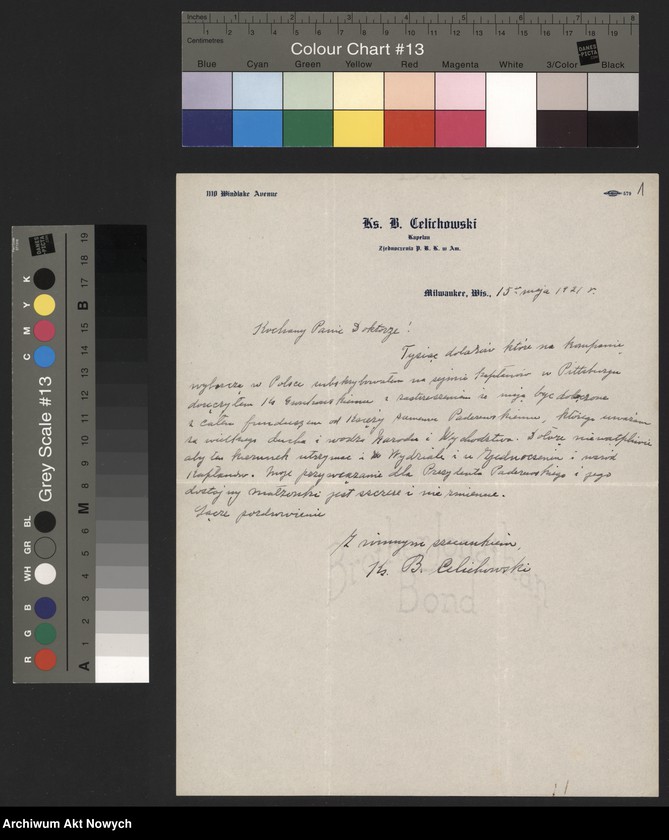 Inches 1 2 3 4 5 6 7 8
Centimetres 1 2 3 4 5 6 7 8 9 10 11 12 13 14 15 16 17 18 19
Colour Chart #13
DANES PICTA .COM
Blue Cyan Green Yellow Red Magenta White 3/Color Black
1110 Windlake Avenue
1
Ks. B. Celichowski
Kapelan
Zjednoczenia P. R. K. w Am.
Milwaukee, Wis., 15go maja 1921 r.
Kochany Panie Doktorze!
Tysiąc dolarów które na kampanię
wyborczą w Polsce subskrybowałem na sejmie Kapłanów w Pittsburgu
doręczyłem Ks. z zastrzeżeniem iż mają być doręczone
z całem funduszem od Księży samemu Paderewskiemu, którego uważam
za wielkiego ducha i wodza Narodu i Wychodztwa. Dołożę niewątpliwie
aby ten kierunek utrzymać i w Wydziale i w Zjednoczeniu i wśród
Kapłanów. Moje przywiązanie dla Prezydenta Paderewskiego i jego
dostojnej małżonki jest szczere i nie zmienne.
Łączę pozdrowienie
Z winnym szacunkiem,
Ks. B. Celichowski
Bond
Grey Scale #13
DANES PICTA .COM
R G B WH GR BL C M Y K
A 1 2 3 4 5 6 M 8 9 10 11 12 13 14 15 B 17 18 19
Archiwum Akt Nowych